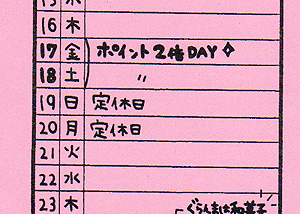 15 水
16 木
17 金 ポイント2倍DAY
18 土 〃
19 日 定休日
20 月 定休日
21 火
22 水
23 木
ぐらんまは和菓子